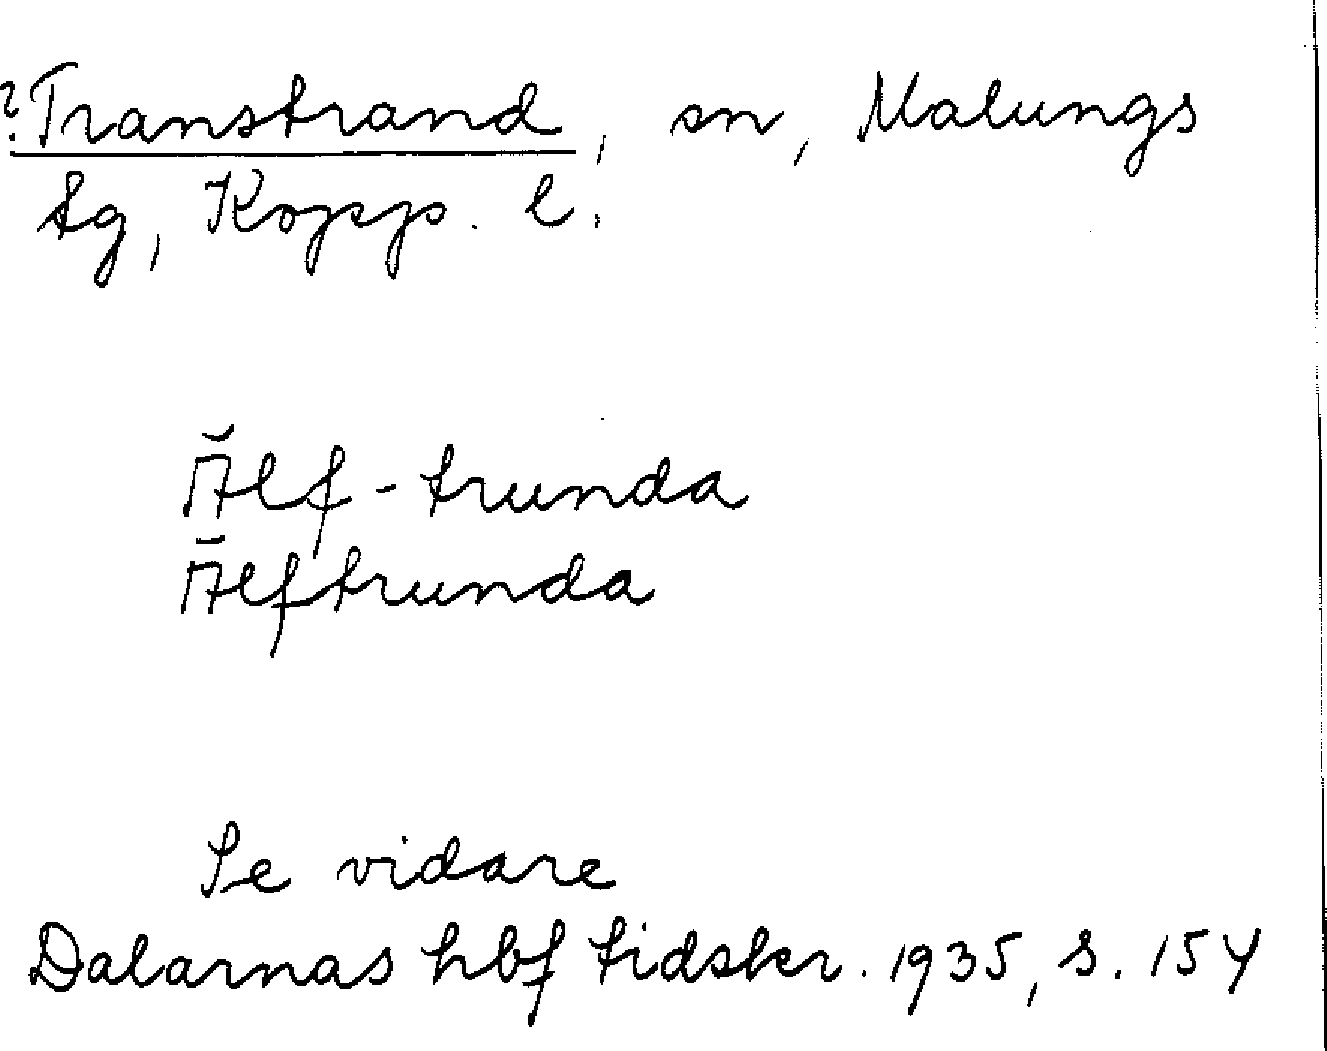 ? Transtrand, sn, Malungs
tg, Kopp. l.
Älf-trunda
Älftrunda
Se vidare
Dalarnas hbf tidskr. 1935, s. 154